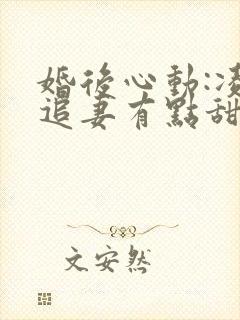 婚後心動:凌
追妻有點甜
文安然